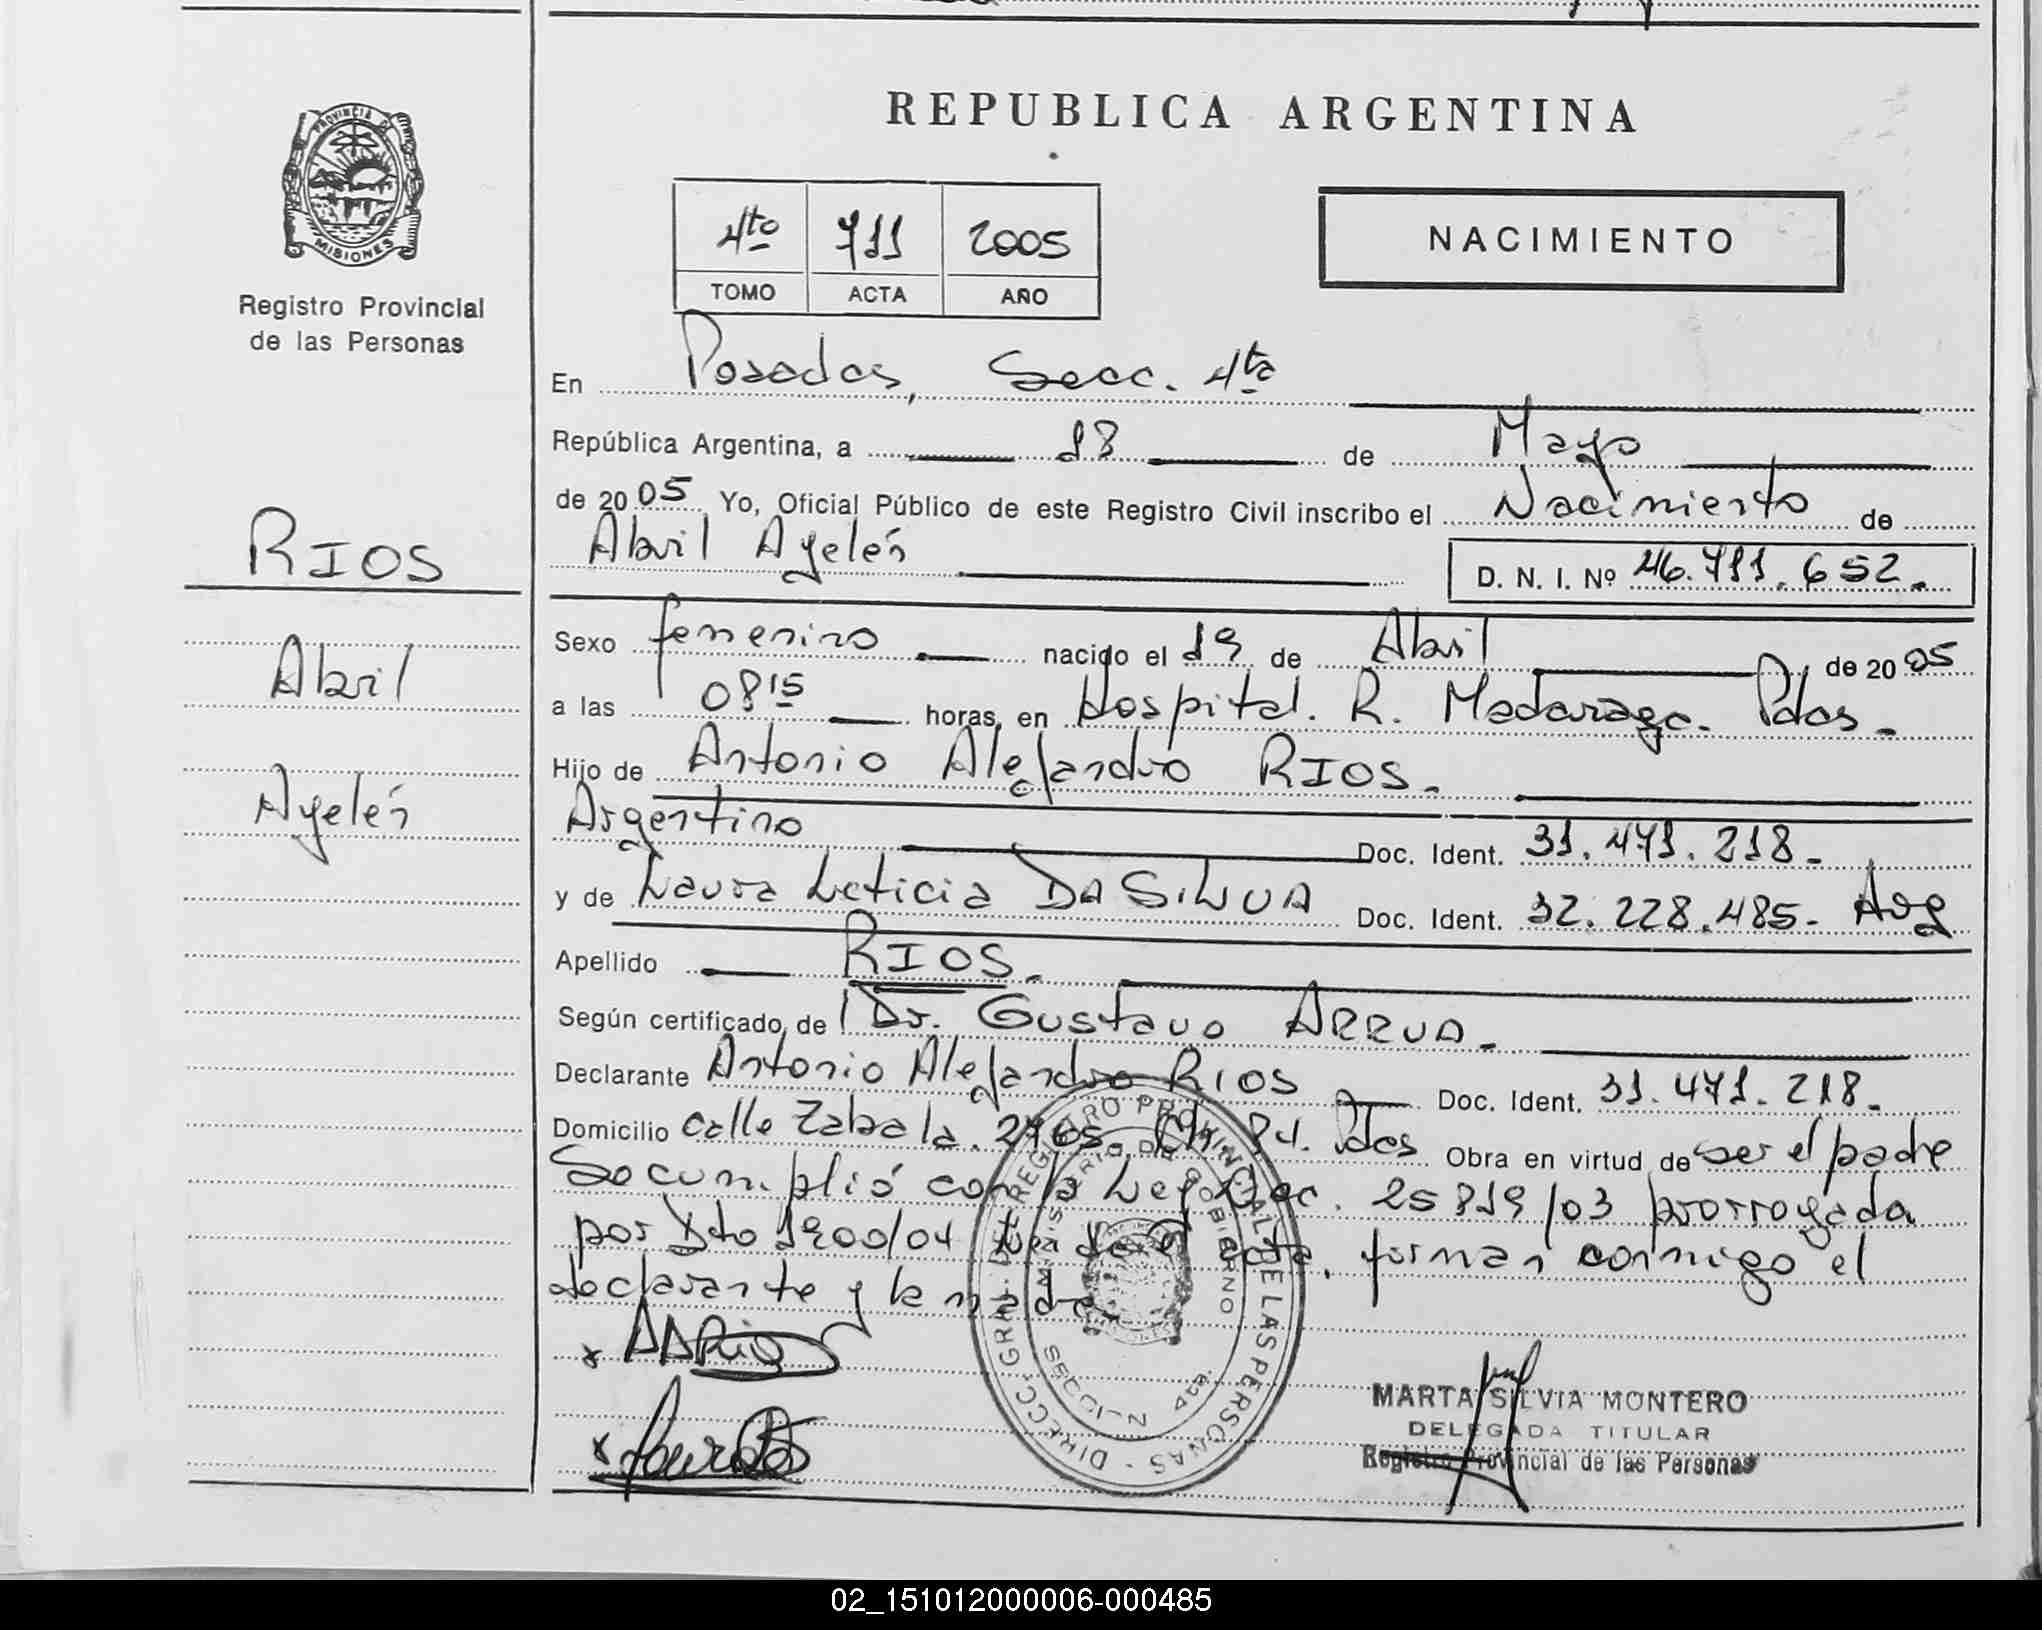 PROVINCIA DE
MISIONES
Registro Provincial
de las Personas
RIOS
Abril
Ayelén
REPUBLICA ARGENTINA
4to 711 2005
TOMO ACTA AÑO
NACIMIENTO
En Posadas, Secc. 4ta
República Argentina, a 18 de Mayo
de 2005 Yo, Oficial Público de este Registro Civil inscribo el Nacimiento de
Abril Ayelén D. N. I. Nº 46.711.652.
Sexo femenino nacido el 19 de Abril de 2005
a las 0815 horas, en Hospital. R. Madariaga. Pdas.
Hijo de Antonio Alejandro RIOS.
Argentino Doc. Ident. 31.471.218.
y de Laura Leticia DA SILVA Doc. Ident. 32.228.485. Arg
Apellido RIOS.
Según certificado de Dr. Gustavo ARRUA.
Declarante Antonio Alejandro RIOS Doc. Ident. 31.471.218.
Domicilio calle Zabala. 2765. Pdas Obra en virtud de ser el padre
Se cumplió con la Ley Dec. 25819/03 prorrogada
por Dto 1900/04 el acta, firman conmigo el
declarante y la madre.
AARios
DIRECC. GRAL. DEL REGISTRO PROVINCIAL DE LAS PERSONAS
MINISTERIO DE GOBIERNO
SECCION 4ta.
MARTA SILVIA MONTERO
DELEGADA TITULAR
Registro Provincial de las Personas
02_151012000006-000485